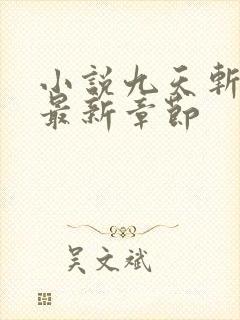 小説九天斬
最新章節
吴文斌